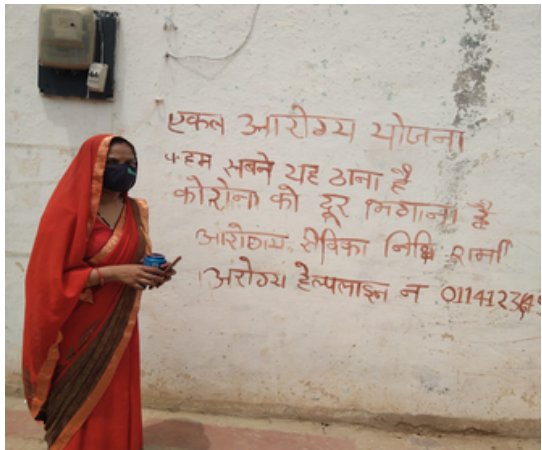 एकल आरोग्य योजना
4. हम सबने यह ठाना है
कोरोना को दूर भगाना है
आरोग्य सेविका निधि शर्मा
अरोग्य हेल्पलाइन न